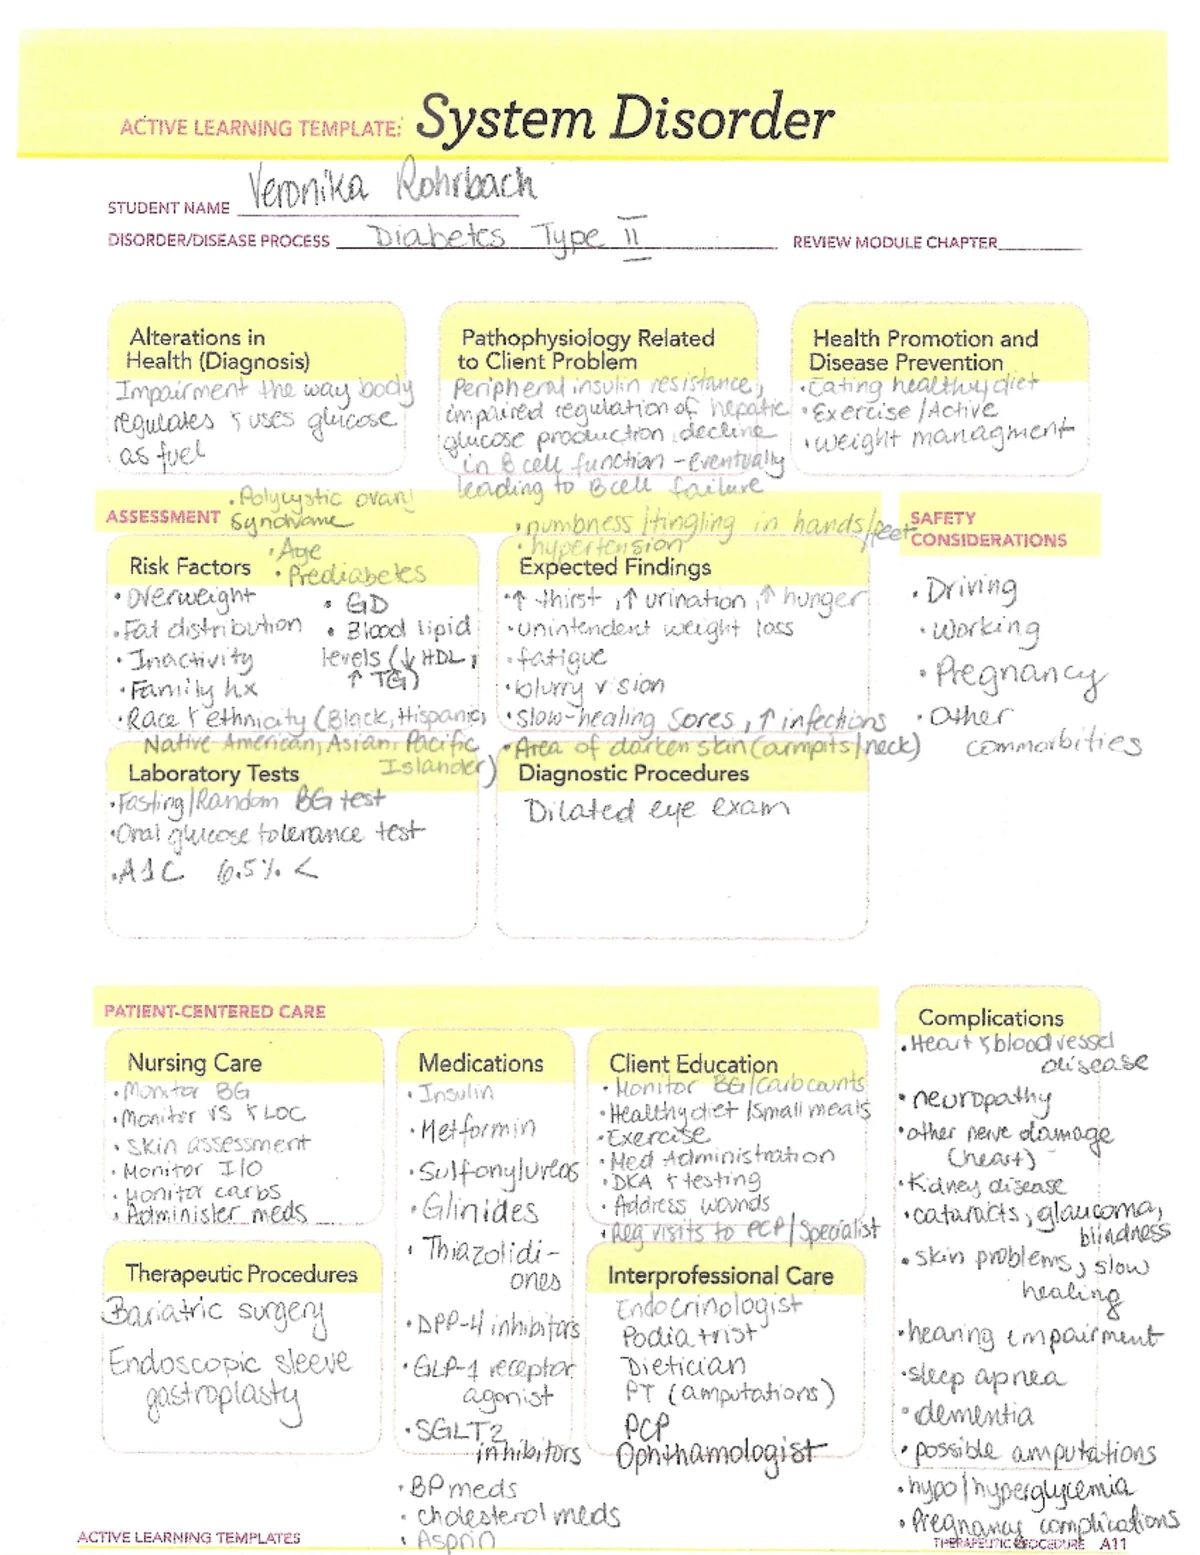 ACTIVE LEARNING TEMPLATE: System Disorder
STUDENT NAME Veronika Rohrbach
DISORDER/DISEASE PROCESS Diabetes Type II
REVIEW MODULE CHAPTER
Alterations in
Health (Diagnosis)
Impairment the way body
regulates & uses glucose
as fuel
Pathophysiology Related
to Client Problem
Peripheral insulin resistance,
impaired regulation of hepatic
glucose production, decline
in B cell function - eventually
leading to B cell failure
Health Promotion and
Disease Prevention
• Eating healthy diet
• Exercise/Active
• Weight managment
ASSESSMENT
• Polycystic ovary
Syndrome
• Age
• Prediabetes
Risk Factors
• Overweight
• Fat distribution
• Inactivity
• Family hx
• Race & ethnicity (Black, Hispanic,
Native American, Asian, Pacific
Islander)
• GD
• Blood lipid
levels (↓ HDL,
↑ TG)
• numbness/tingling in hands/feet
• hypertension
Expected Findings
• ↑ thirst, ↑ urination, ↑ hunger
• unintendent weight loss
• fatigue
• blurry vision
• slow-healing sores, ↑ infections
• Area of darken skin (armpits/neck)
SAFETY
CONSIDERATIONS
• Driving
• Working
• Pregnancy
• Other
commorbities
Laboratory Tests
• Fasting/Random BG test
• Oral glucose tolerance test
• A1C 6.5% <
Diagnostic Procedures
Dilated eye exam
PATIENT-CENTERED CARE
Nursing Care
• Monitor BG
• Monitor VS & LOC
• Skin assessment
• Monitor I/O
• Monitor carbs
• Administer meds
Therapeutic Procedures
Bariatric surgery
Endoscopic sleeve
gastroplasty
Medications
• Insulin
• Metformin
• Sulfonylureas
• Glinides
• Thiazolidi-
ones
• DPP-4 inhibitors
• GLP-1 receptor
agonist
• SGLT2
inhibitors
• BP meds
• cholesterol meds
• Asprin
Client Education
• Monitor BG/Carb counts
• Healthy diet/small meals
• Exercise
• Med Administration
• DKA & testing
• Address wounds
• Reg visits to PCP/Specialist
Interprofessional Care
Endocrinologist
Podiatrist
Dietician
PT (amputations)
PCP
Ophthamologist
Complications
• Heart & blood vessel
disease
• neuropathy
• other nerve damage
(heart)
• Kidney disease
• cataracts, glaucoma,
blindness
• skin problems, slow
healing
• hearing impairment
• sleep apnea
• dementia
• possible amputations
• hypo/hyperglycemia
• Pregnancy complications
ACTIVE LEARNING TEMPLATES
THERAPEUTIC PROCEDURE A11